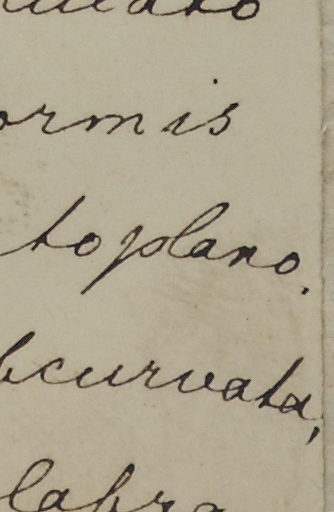 ormis
toplano.
bcurvata,
labra